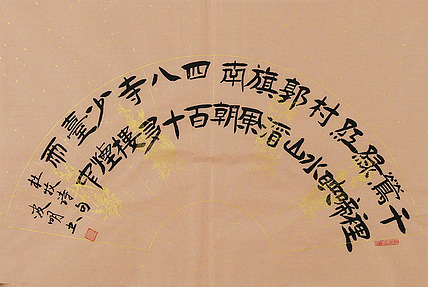 千里
鶯啼
綠映
紅水
村山
郭酒
旗風
南朝
四百
八十
寺多
少樓
臺煙
雨中
杜牧诗句
波明书